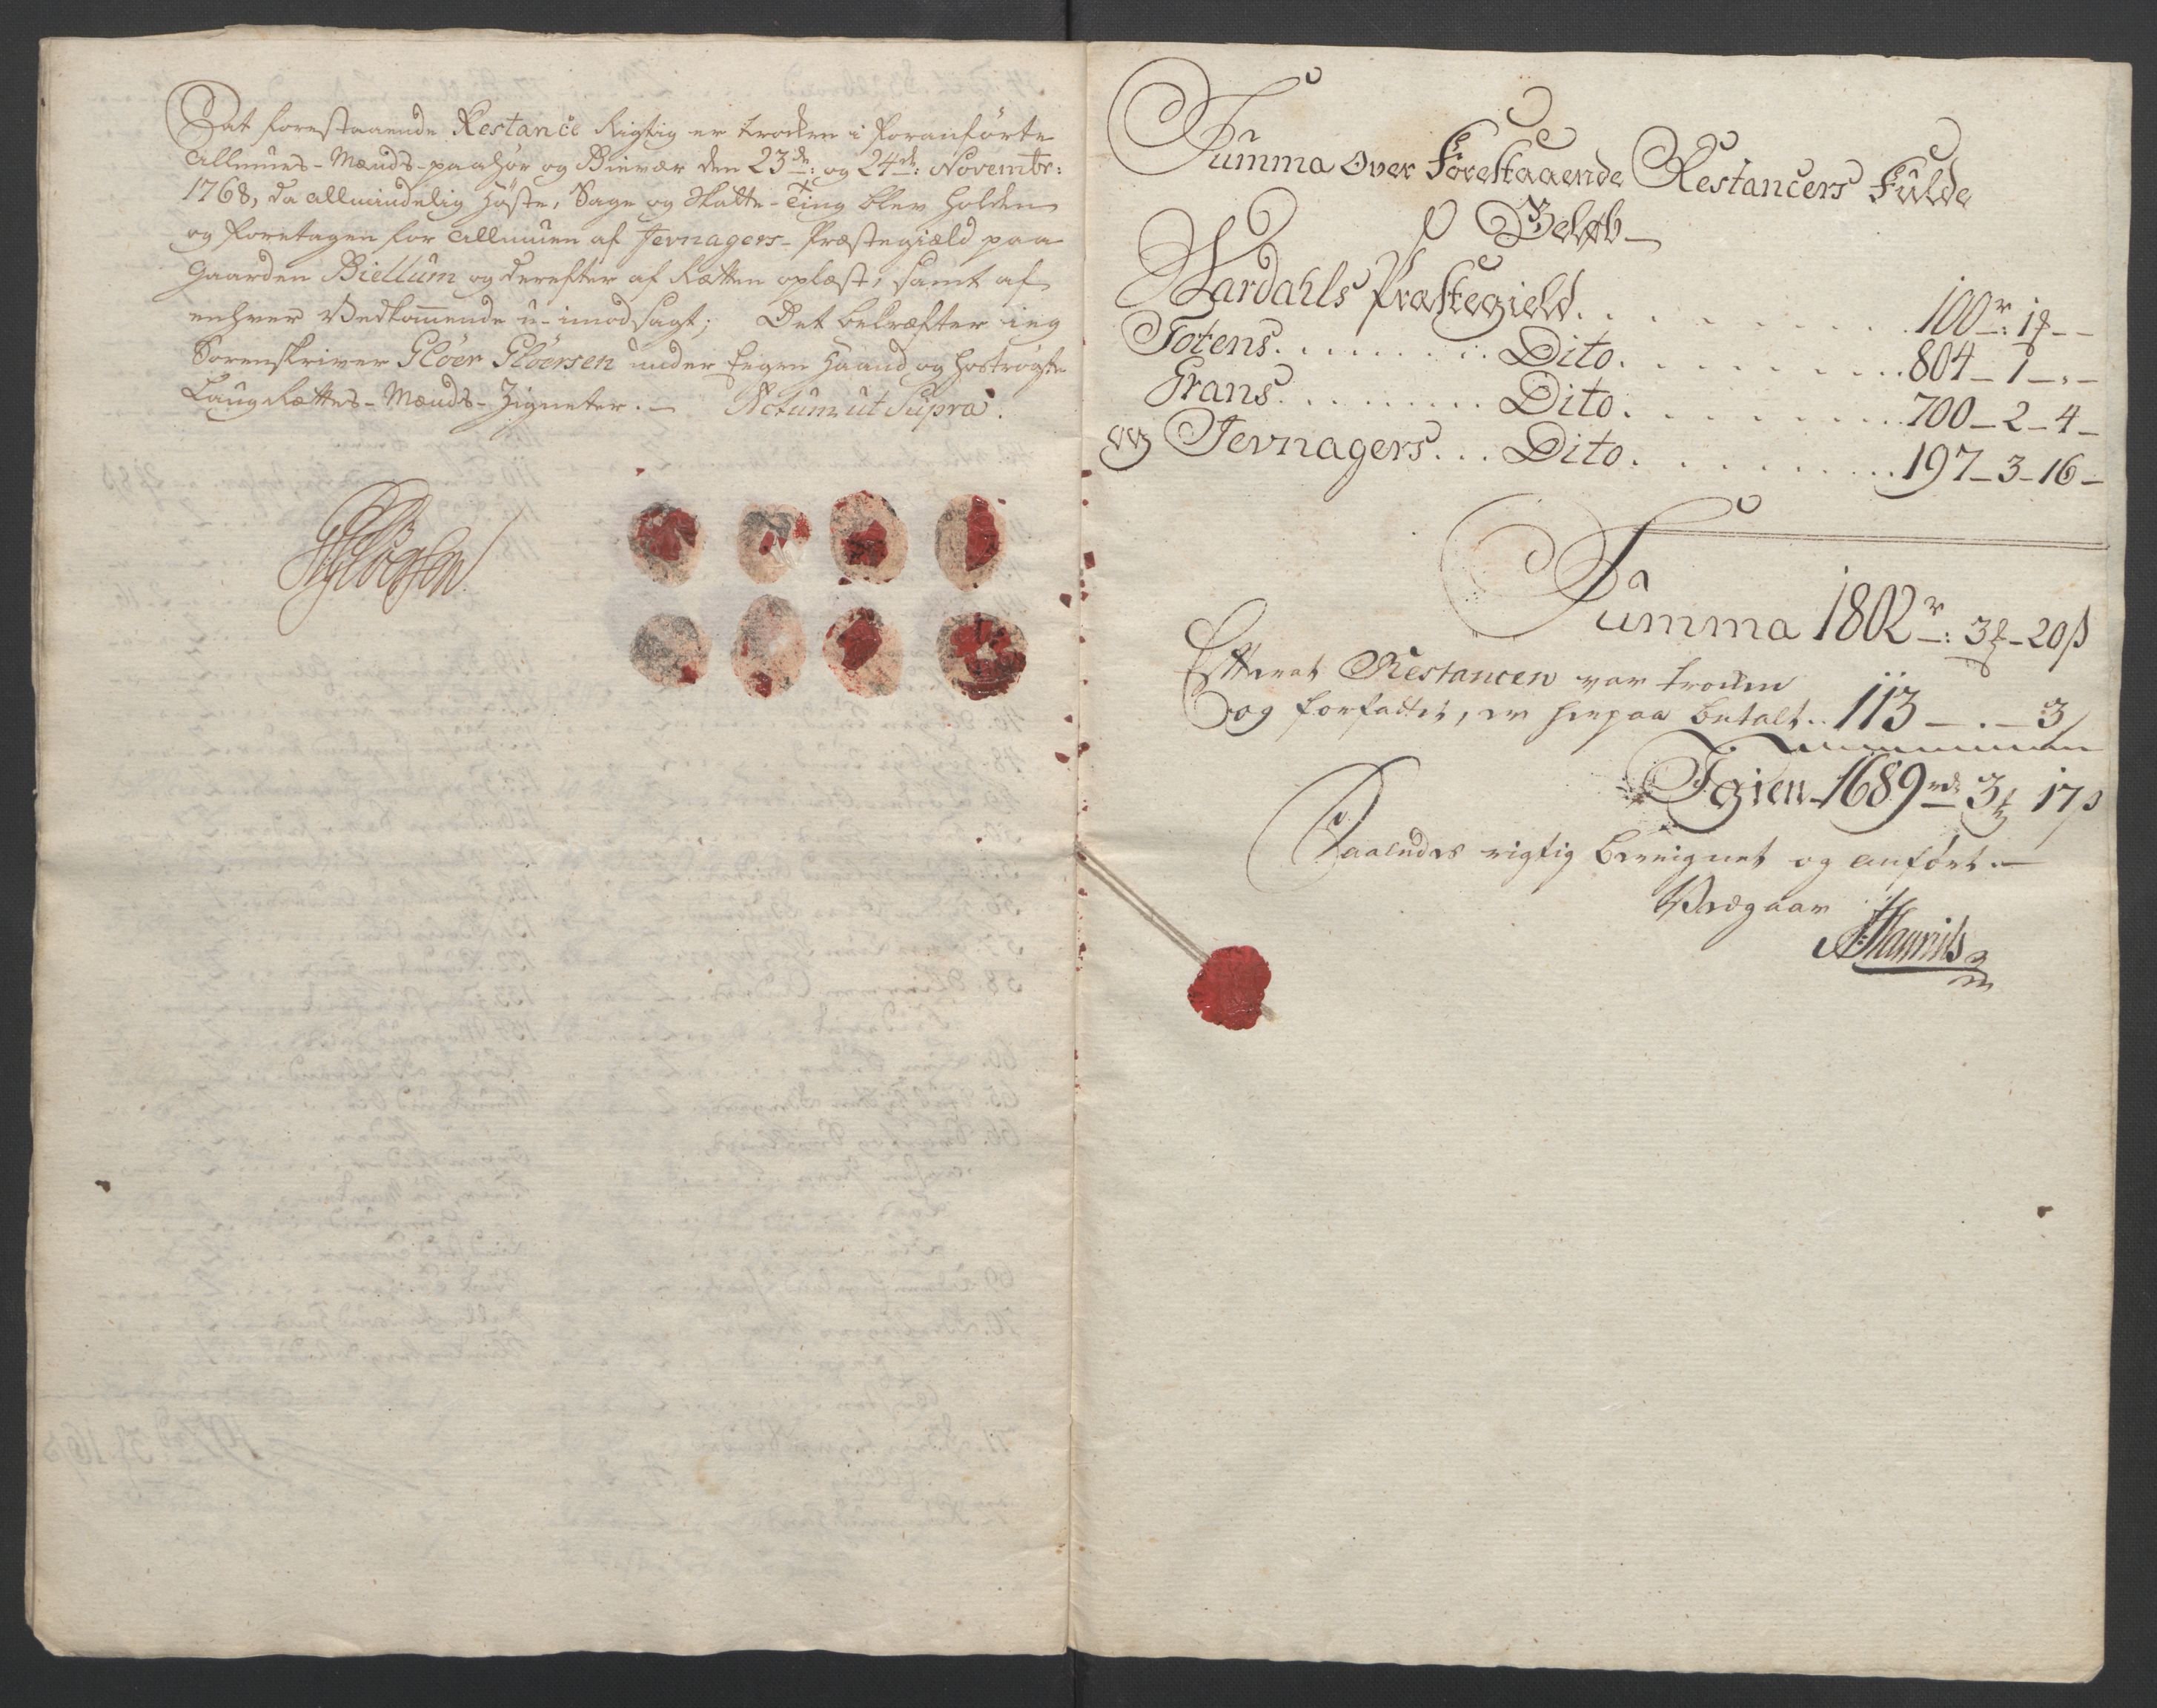 At forestaaende Restance Rigtig er trocken i foranførte
Allmues-Mænds-paahør og Bievær den 23de: og 24de: Novembr:
1768, da Allmindelig Høste, Sage og Skatte-Ting blev holden
og foretagen for Allmuen af Jevnagers-Præstegiæld paa
Gaarden Biellum og derefter af Rætten oplæst, samt af
enhver Vedkom̅ende u-imodsagt; Det bekræfter ieg
Sorenskriver Glöer Glöersen under Eegen Haand og hoströgte
Laug Rættes-Mænds-Zigneter.— Actum ut Supra.
GGlöersen
Summa Over Forestaaende Restancers Fulde
Beløb—
Wardahls Præstegield. . . . . . . . . 100r: 1ƒ — —
Totens. . . . . . . . Dito. . . . . . . . . 804 — 1 — . —
Grans. . . . . . . . Dito. . . . . . . . . 700 — 2 — 4 —
og Jevnagers. . . Dito. . . . . . . . . 197 — 3 — 16 —
Summa 1802r: 3ƒ — 20ß
Efterat Restancen var trocken
og forfattet, er herpaa betalt.. 113 — . — 3
Igien 1689rd 3ƒ 17ß
Saaledes rigtig bereignet og anført.—